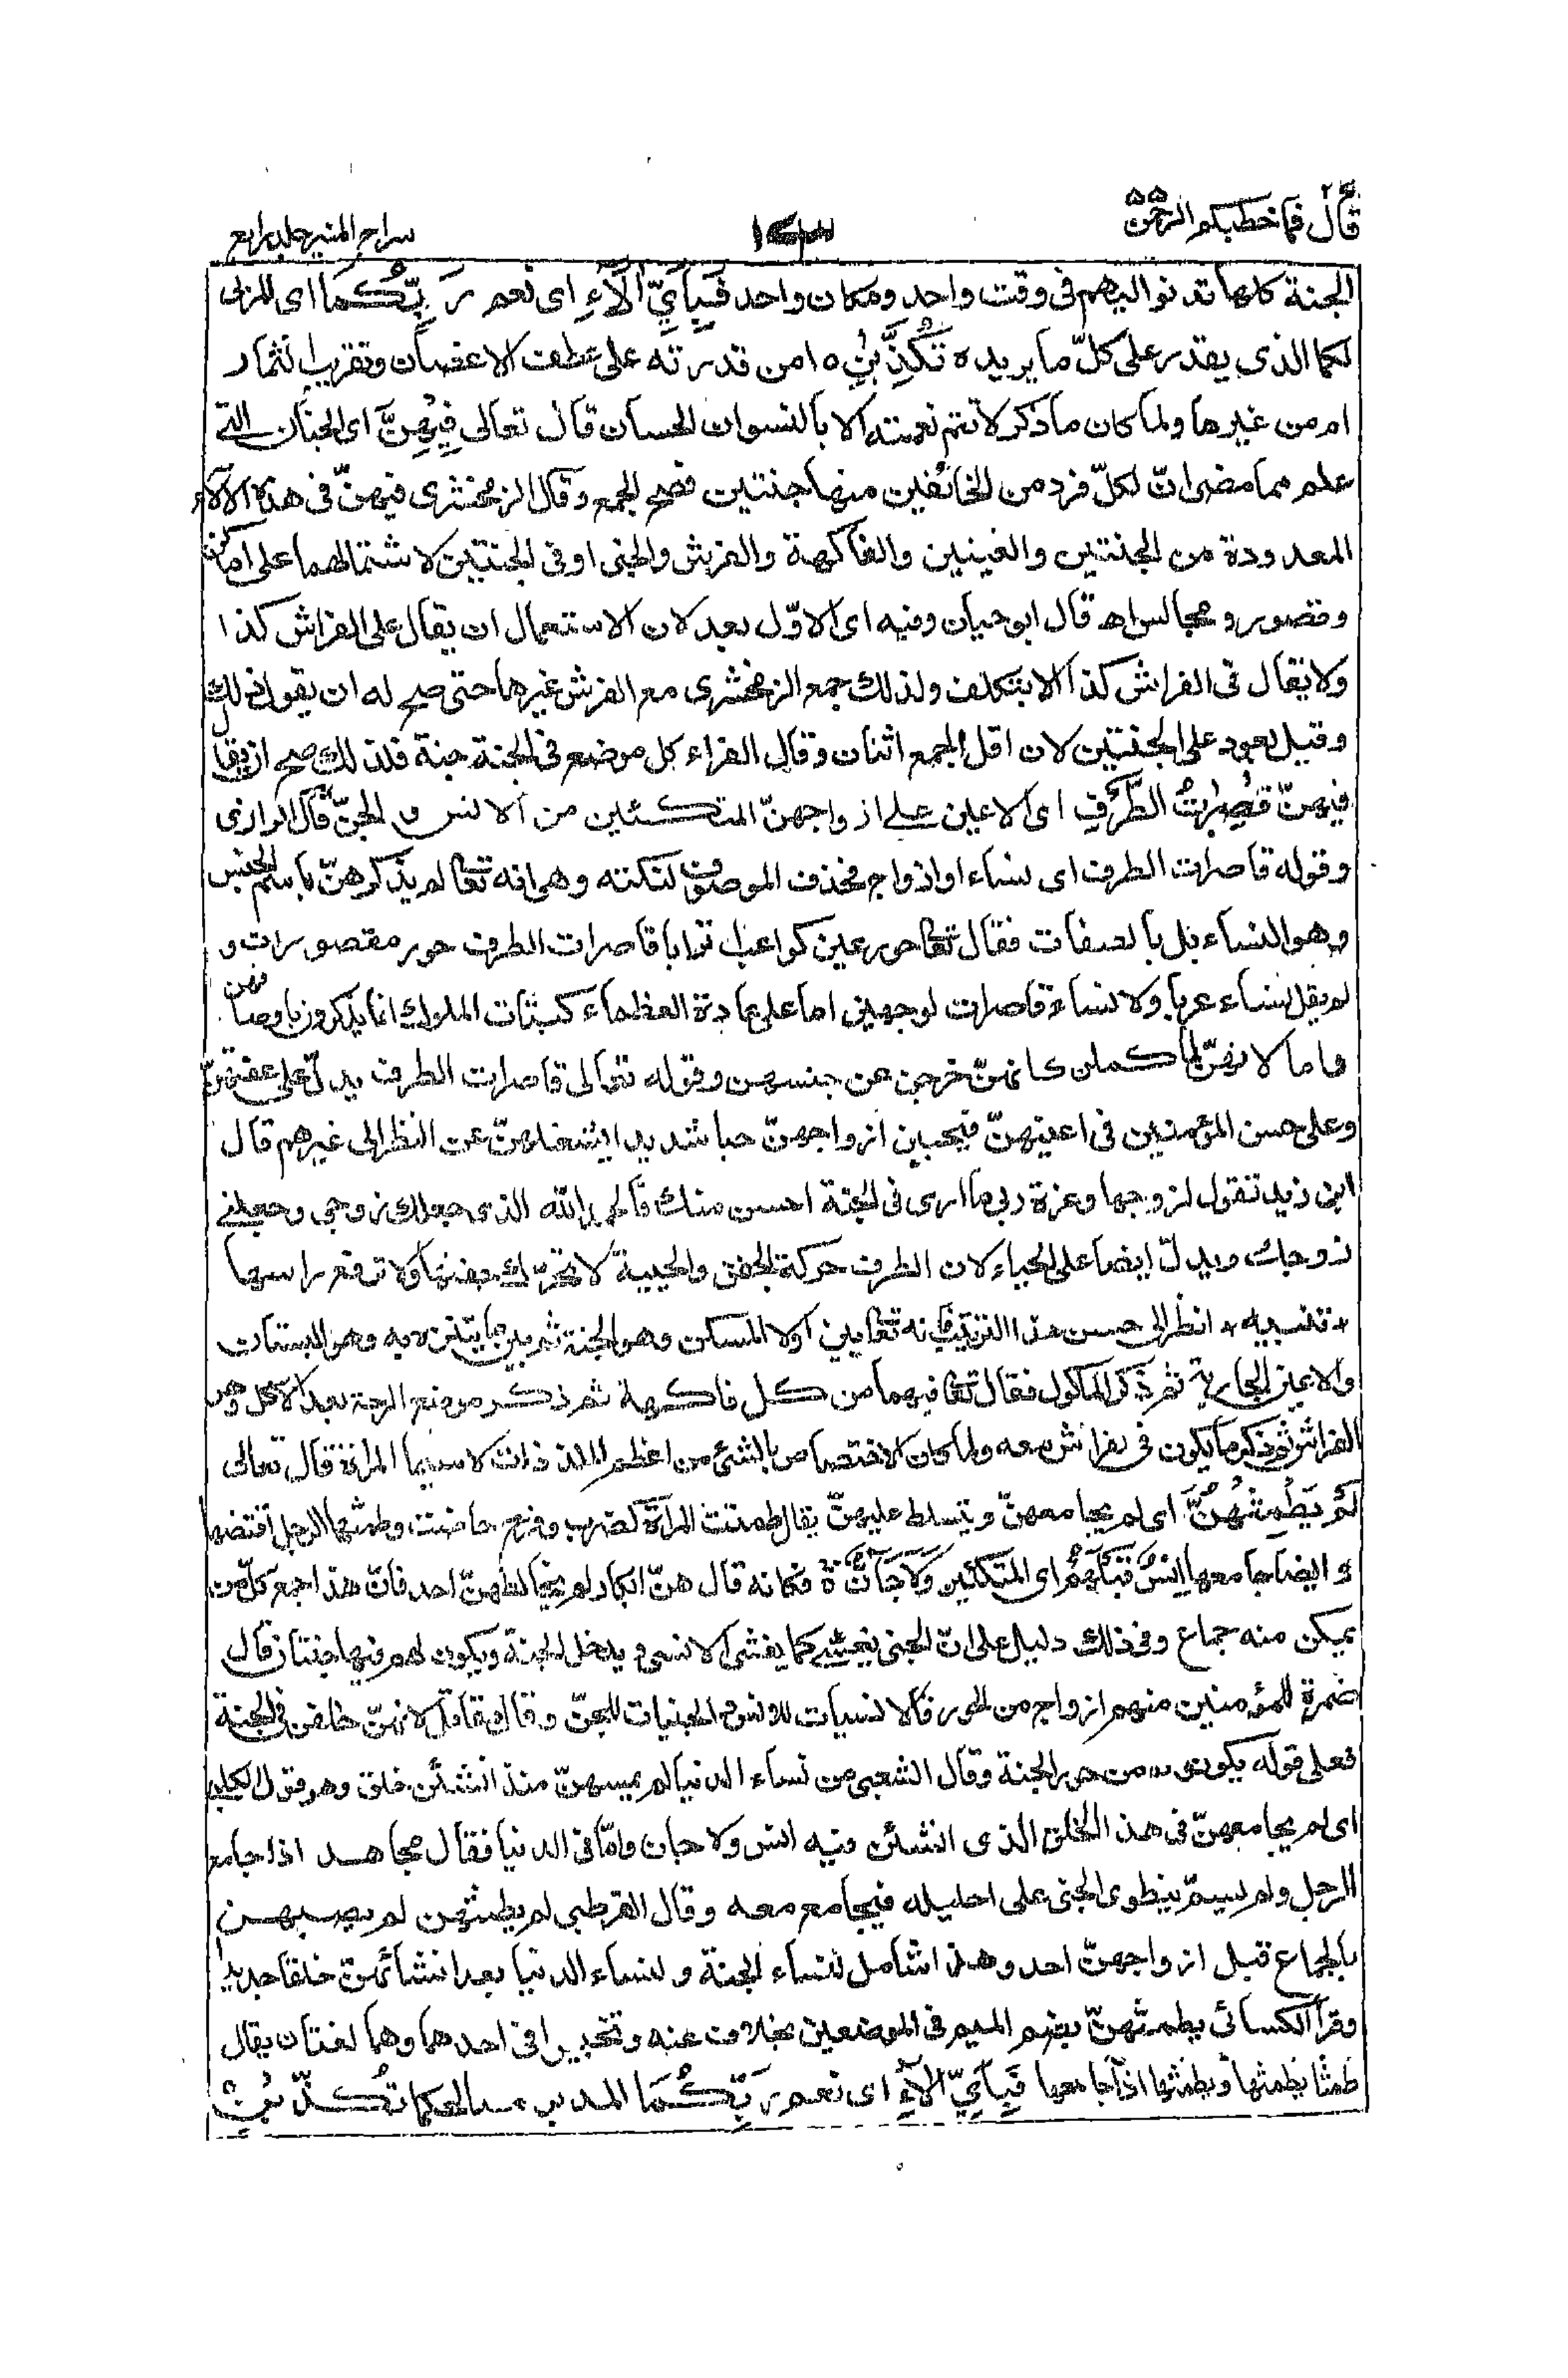 قال فما خطبكم الرحمن ٥٥
سراج المنير جلد رابع
الجنة كلها تدنوا اليهم فى وقت واحد ومكان واحد فَبِاَيِّ اٰلَآءِ اى نعم رَبِّكُمَا اى المربى
لكما الذى يقدر على كلّ ما يريده تُكَذِّبٰنِ ٥ امن قدرته على عطف الاغصان وتقريب الثمار
ام من غيرها ولما كان ما ذكر لا تتم نعمته الا بالنسوان الحسان قال تعالى فِيْهِنَّ اى الجنان التى
علم مما مضى انّ لكلّ فرد من الخائفين منها جنتين فصح الجمع وقال الزمخشرى فيهنّ فى هذه الآلاء
المعدودة من الجنتين والعينين والفاكهة والفرش والجنى او فى الجنتين لاشتمالهما على اماكن
وقصور ومجالس اھ قال ابو حيان وفيه اى الاوّل بعد لان الاستعمال ان يقال على الفراش كذا
ولا يقال فى الفراش كذا الا بتكلف ولذلك جمع الزمخشرى مع الفرش غيرها حتى صح له ان يقول ذلك
وقيل يعود على الجنتين لان اقل الجمع اثنان وقال الفراء كل موضع فى الجنة جنة فلذلك صح ان يقال
فيهنّ قٰصِرٰتُ الطَّرْفِ اى الاعين على ازواجهنّ المتكئين من الانس و الجنّ قال الرازى
وقوله قاصرات الطرف اى نساء او ازواج فحذف الموصوف لنكتة وهو انه تعا لم يذكرهنّ باسم الجنس
وهو النساء بل بالصفات فقال تعا حور عين كواعب اترابا قاصرات الطرف حور مقصورات و
لم يقل نساء عربا ولا نساء قاصرات لوجهين اما على عادة العظماء كبنات الملوك انما يذكرون باوصافهن
واما لانهنّ لما كملن كانهنّ خرجن من جنسهن وقوله تعالى قاصرات الطرف يدلّ على عفتهنّ
وعلى حسن المؤمنين فى اعينهنّ فيحببن ازواجهنّ حبا شديدا يشغلهنّ عن النظر الى غيرهم قال
ابن زيد تقول لزوجها وعزة ربى ما ارى فى الجنة احسن منك فالحمد لله الذى جعلك زوجى وجعلنى
زوجك ويدلّ ايضا على الحياء لان الطرف حركة الجفن والحييية لا تحرّك جفنها ولا ترفع راسها
* تنبيه * انظر الى حسن هذا الترتيب فانه تعا بين اولا المسكن وهو الجنة ثم بين ما يتنزه به وهو البستان
والاعين الجارية ثم ذكر الماكول فقال تعا فيهما من كل فاكهة ثم ذكر موضع الراحة بعد الاكل وهو
الفراش ثم ذكر ما يكون فى الفراش معه ولما كان الاختصاص بالشئ من اعظم الملذذات لا سيما المراة قال تعالى
لَمْ يَطْمِثْهُنَّ اى لم يجامعهنّ ويتسلط عليهنّ يقال طمثت المراة كضرب وفرح حاضت وطمثها الرجل افتضها
و ايضا جامعها اِنْسٌ قَبْلَهُمْ اى المتكئين وَلَا جَآنٌّ ٥ فكانه قال هنّ ابكار لم يخالطهنّ احد فانّ هذا جمع كلّ من
يمكن منه جماع وفى ذلك دليل على انّ الجنى يغشى كما يغشى الانسى ويدخل الجنة ويكون لهم فيها جنتان قال
ضمرة للمؤمنين منهم ازواج من الحور فالانسيات للانس والجنيات للجنّ وقال مقاتل لانهنّ خلقن فى الجنة
فعلى قوله يكونون من حور الجنة وقال الشعبى من نساء الدنيا لم يمسهنّ منذ انشئن خلق وهو قول الكلبى
اى لم يجامعهنّ فى هذ الخلق الذى انشئن فيه انس ولا جان وامّا فى الدنيا فقال مجاهد اذا جامع
الرجل ولم يسمّ ينطوى الجنى على احليله فيجامع معه وقال القرطبى لم يطمثهن لم يصبهن
بالجماع قبل ازواجهنّ احد وهذا شامل لنساء الجنة و لنساء الدنيا بعد انشائهنّ خلقا جديدا
وقرأ الكسائى يطمثهنّ بضم الميم فى الموضعين بخلاف عنه وتخيير فى احدهما وهما لغتان يقال
طمثها يطمثها ويطمثها اذا جامعها فَبِاَيِّ اٰلَآءِ اى نعم رَبِّكُمَا المدبر تُكَذِّبٰنِ